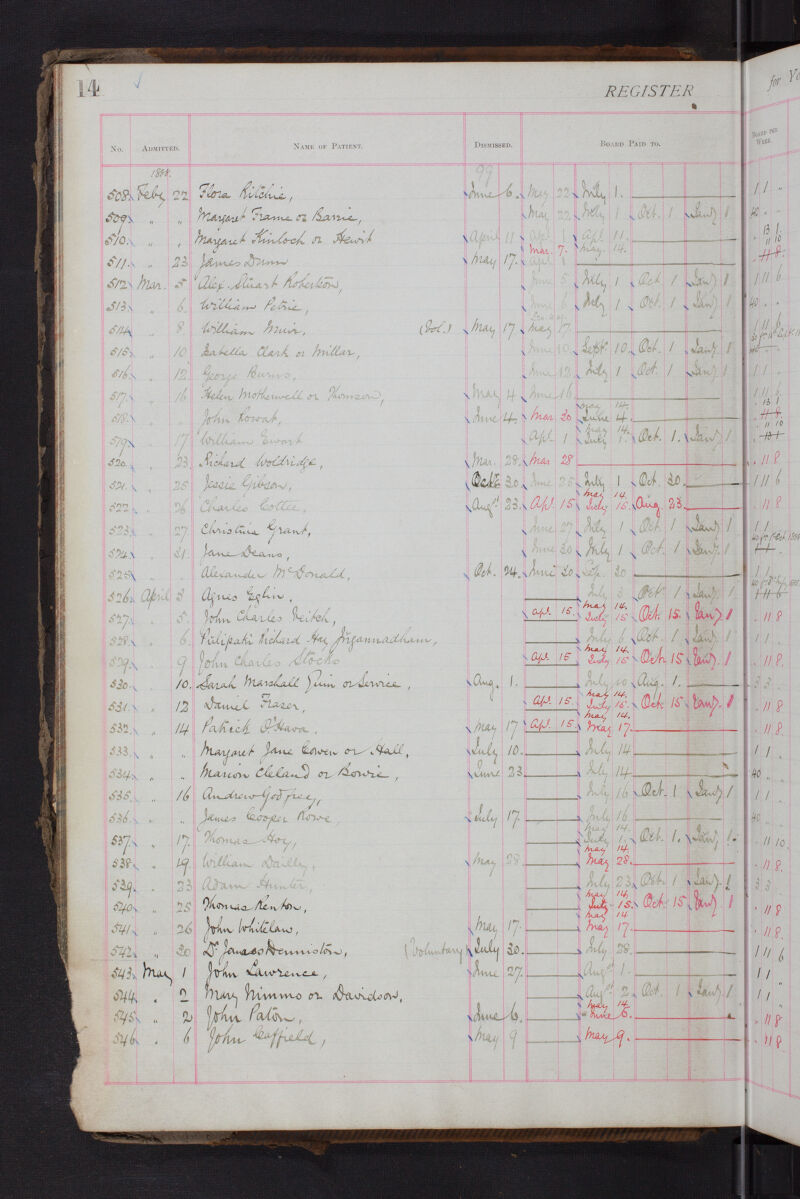 14 REGISTER for
No. ADMITTED. NAME OF PATIENT. DISMISSED. BOARD PAID TO. BOARD PER WEEK
99
508 Feby 22 Flora Ritchie, June 6. May 22 July 1. 11 "
509 " " Margaret Frame or Barrie, May 22 July 1 Oct. 1 Jany 1 40 " "
510 " " Margaret Kinloch or Hewit April 11 Apl 1 Apl 11. 13 1
511 " 23 James Dunn May 17. Mar. 7. May. 14. 11 10 11 8
512 Mar. 5 Alex. Stuart Robertson, June 5 July 1 Oct 1 Jany 1 1 11 6
513 " 6 William Petrie, June 6 July 1 Oct. 1 Jany 1 40 " "
514 " 8 William Muir, (Vol.) May 17. May 17. 1 11 6
515 " 10 Isabella Clark or Millar, June 10 Sept. 10 Oct. 1 Jany 1
516 " 12 George Burns, June 12 July 1 Oct. 1 Jany 1 1 1 "
517 " 16 Helen Motherwell or Thomson, May 4 June 16 1 11 6
518 " " John Rowat, June 4 Mar 20 May 14. June 4. 13 1
519 " 17 William Ewart Apl 1 May 14. July 1. Oct. 1. Jany 1 11 10
520 " 23 Richard Woldridge, Mar. 28. Mar 28 " 11 8
521 " 25 Jessie Gibson, Oct. 30. June 25 July 1 Oct. 30. 1 11 6
522 " 26 Charles Cottee, Augt 23. Apl. 15 May 14. July 15. Aug. 23. " 11 8
523 " 27 Christina Grant, June 27 July 1 Oct 1 Jany 1 1 1
524 " 31 Jane Deans, June 30 July 1 Oct. 1 Jany. 1
525 " " Alexander McDonald, Oct. 24. June 30 Sep. 30 1 1 "
526 April 3 Agnes Eglin, July 3 Oct. 1 Jany. 1 1 11 6
527 " 5 John Charles Veitch, Apl. 15 May 14. July 15 Oct. 15. Jany 1 " 11 8
528 " 6 Richard Hay July 6 Oct. 1 Jany 1 1 1
529 " 9 John Charles Stocks Apl. 15 May 14. July 15 Oct. 15 Jany. 1 " 11 8.
530 " 10 Sarah Marshall or Service, Aug. 1. July 10 Aug. 1. 3 3
531 " 12 Daniel Fraser, Apl. 15. May 14. July 15. Oct. 15 Jany. 1 " 11 8
532 " 14 Patrick O'Hara. May 17 Apl. 15. May 14. May 17. " 11 8.
533 " " Margaret Jane Cowen or Hall, July 10. July 14 1 1 "
534 " " Marion Cleland or Bowie, June 23 July 14 40 "
535 " 16 Andrew Godfrey, July 16 Oct. 1 Jany 1 1 1
536 " " James Cooper Rowe, July 17. July 16 40 "
537 " 17. Thomas Hoy, May 14. July 1. Oct. 1. Jany 1 " 11 10.
538 " 19. William Dailly, May 28. May 14. May 28. " 11 8.
539 " 23 Adam Hunter, July 23. Oct. 1 Jany. 1 3 3
540 " 25 Thomas Renton, May 14. July 15. Oct. 15 Jany 1 " 11 8
541 " 26 John Whitelaw, May 17. May 14 May 17. " 11 8.
542 " 30 Dr. James Denniston, (Voluntary) July 30. July 28. 1 11 6
543 May 1 John Lawrence, June 27. Augt 1. 1 1
544 " 2 Mary Nimmo or Davidson, Augt 2. Oct. 1 Jany. 1 1 1
545 " 2 John Paton, June 6. May 14. June 6. " 11 8
546 " 6 John Caffield, May 9 May 9. " 11 8